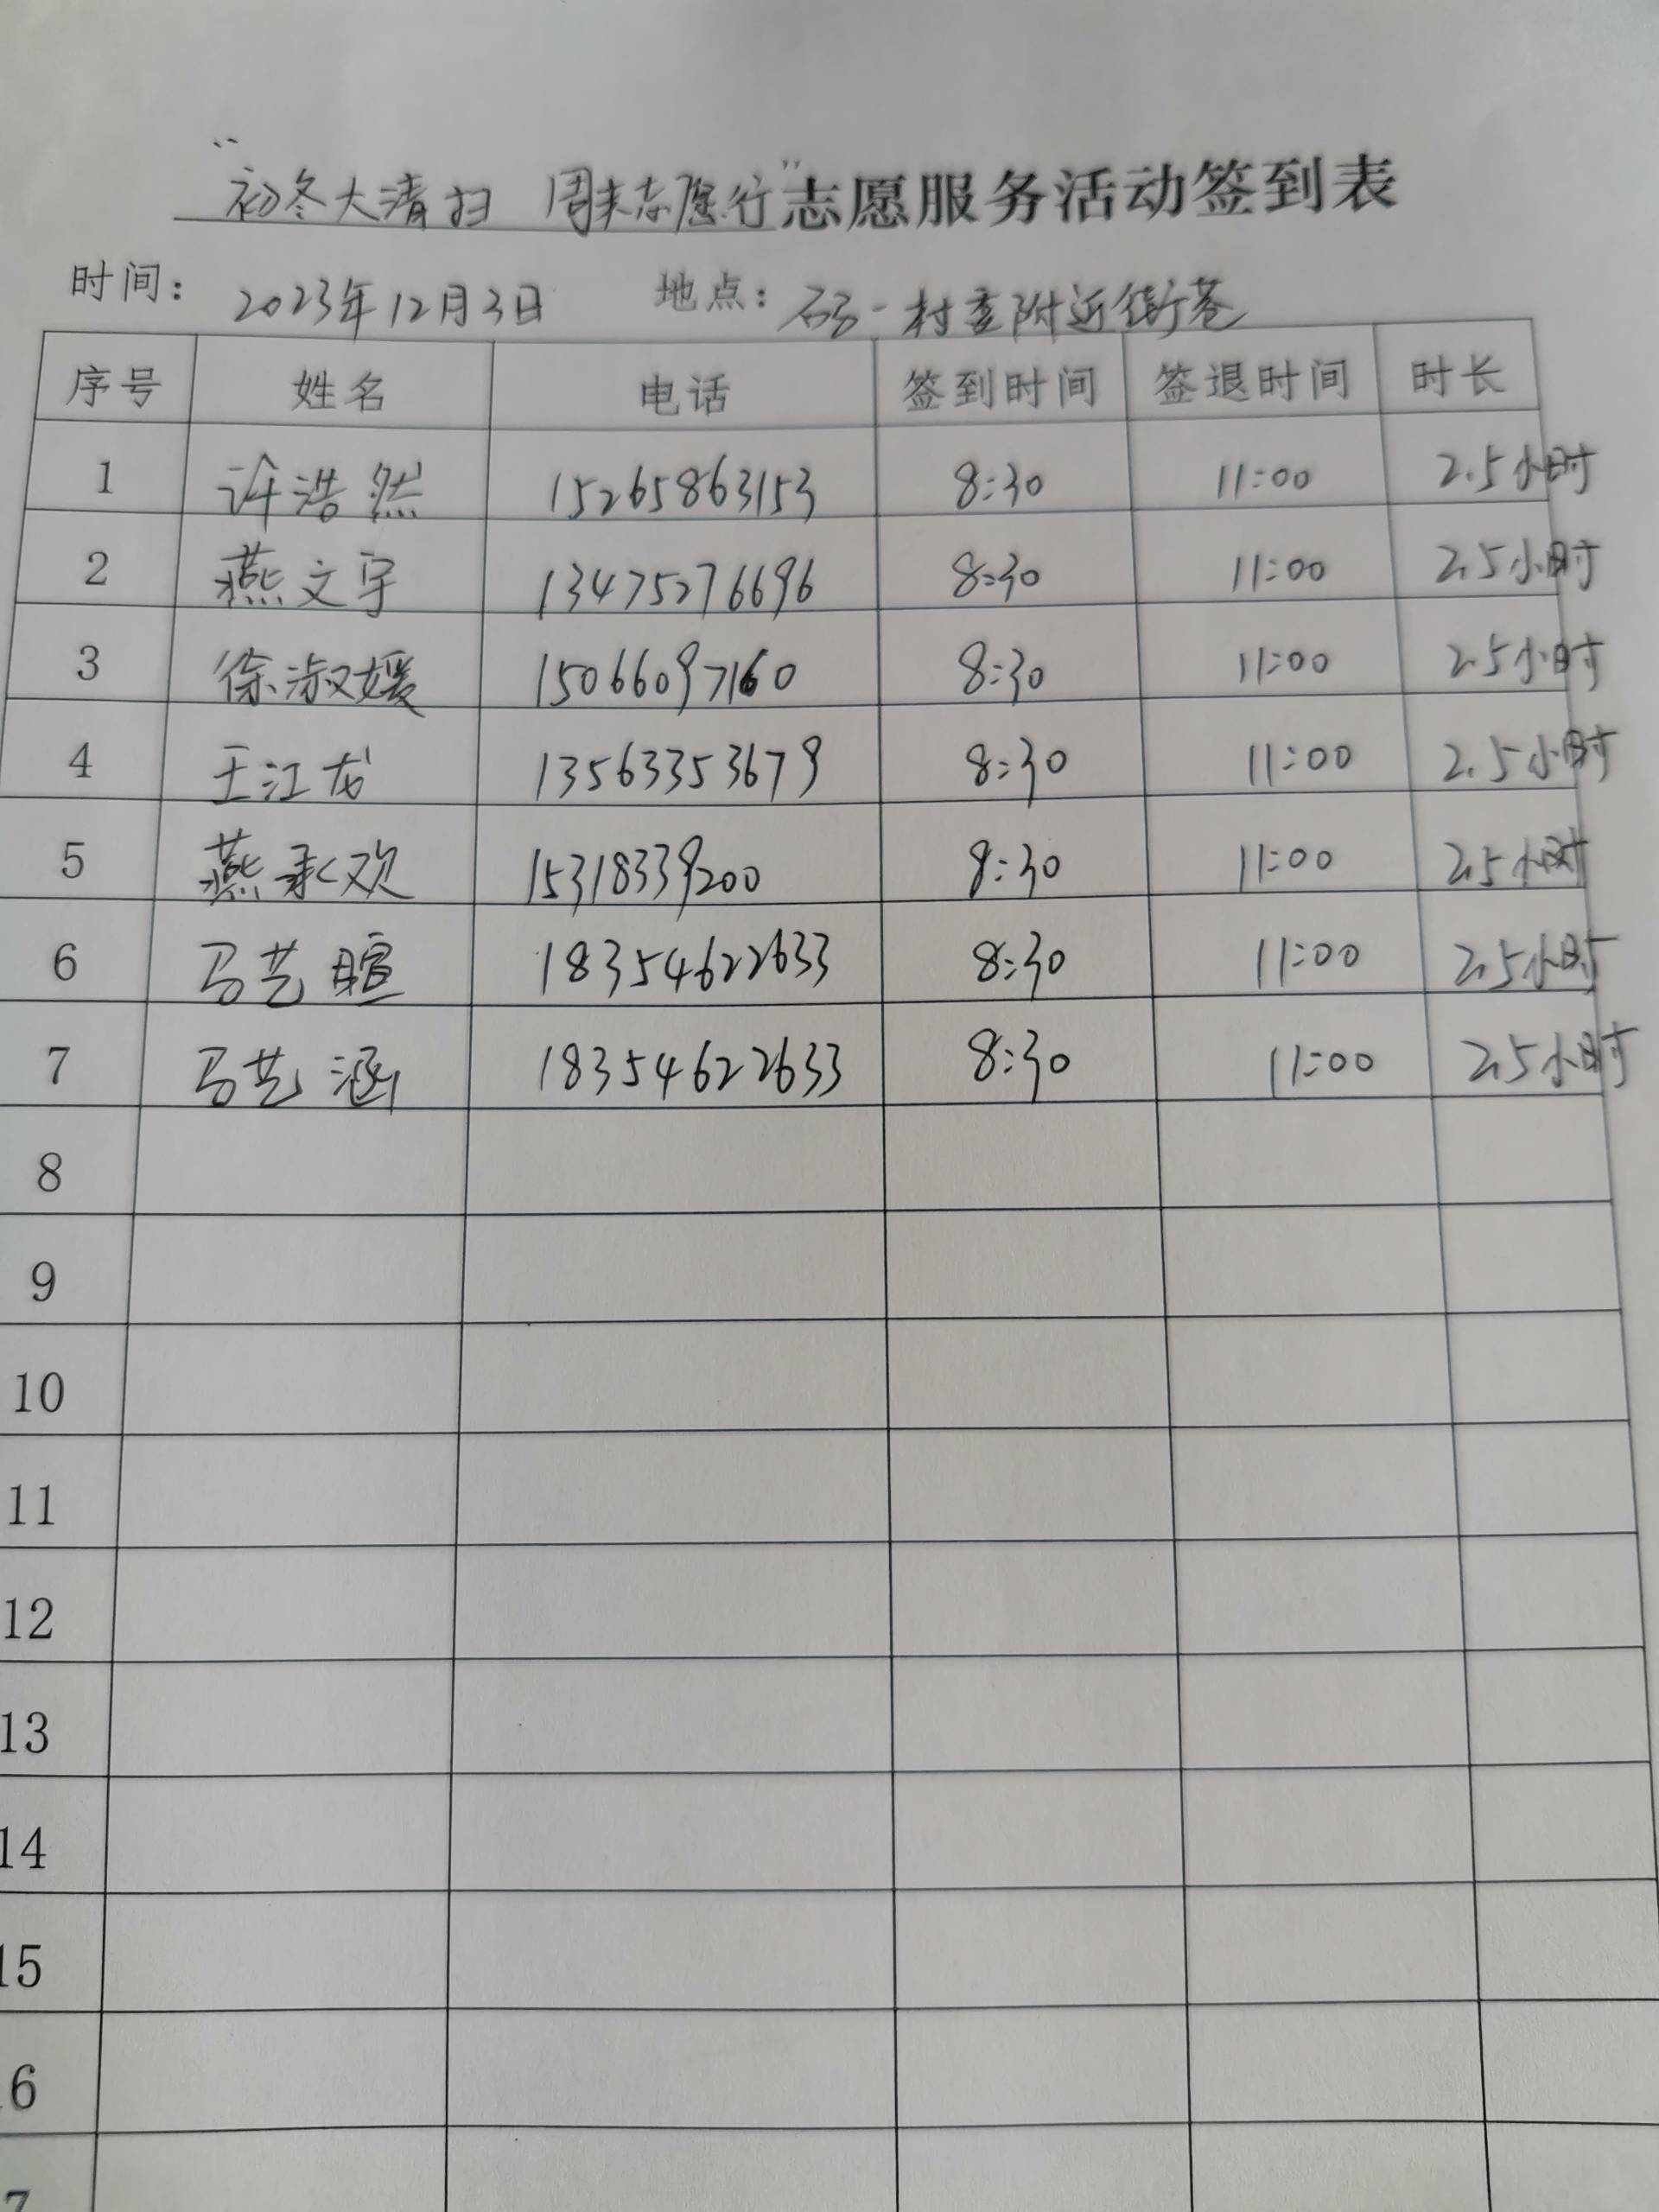 “初冬大清扫 周末志愿行”志愿服务活动签到表
时间： 2023年12月3日 地点： 一村委附近街巷
序号 姓名 电话 签到时间 签退时间 时长
1 许浩然 15265863153 8:30 11:00 2.5小时
2 燕文宇 13475276696 8:30 11:00 2.5小时
3 徐淑媛 15066097160 8:30 11:00 2.5小时
4 王江龙 13563353679 8:30 11:00 2.5小时
5 燕承欢 15318339200 8:30 11:00 2.5小时
6 马艺暄 18354622633 8:30 11:00 2.5小时
7 马艺涵 18354622633 8:30 11:00 2.5小时
8
9
10
11
12
13
14
15
6
7